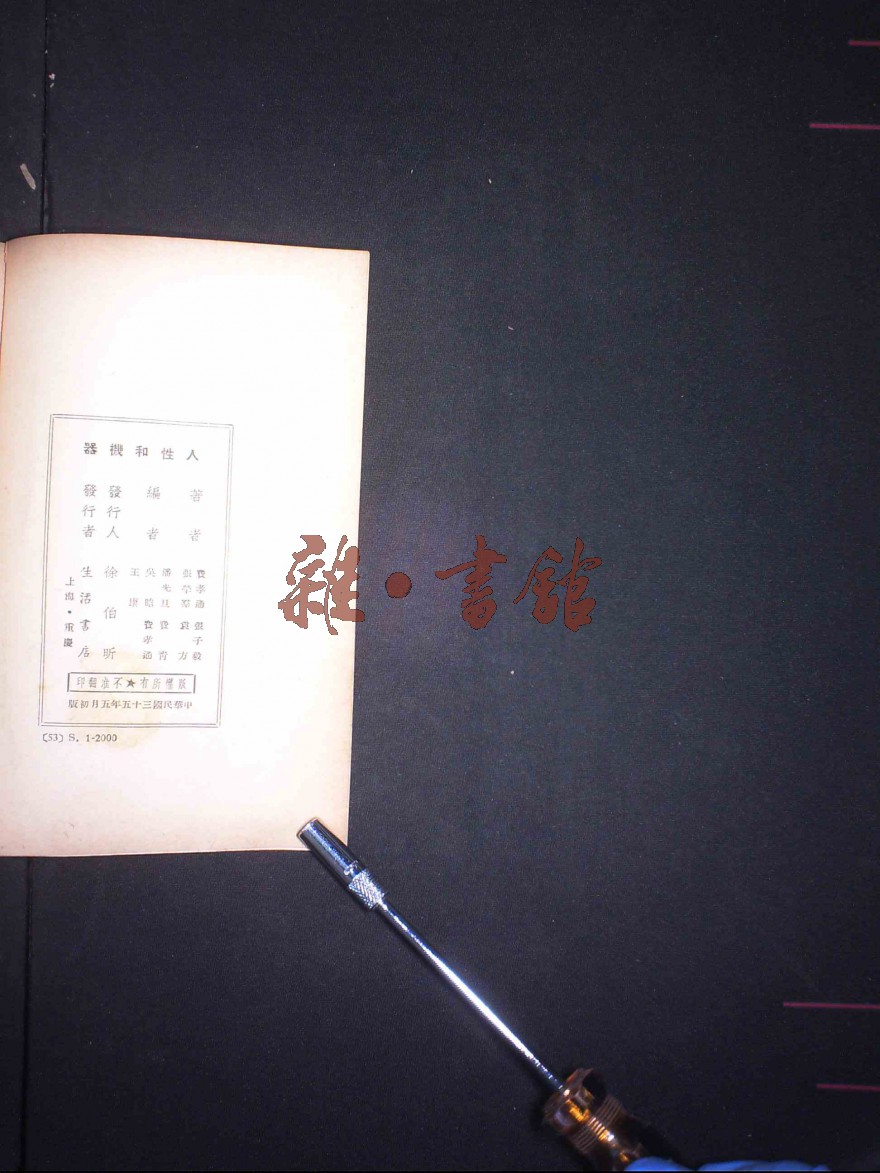 人性和機器
著者 費孝通 張子毅
張犖羣 袁方
編者 潘光旦 費青
吳晗 費孝通
王康
發行人 徐伯昕
發行者 生活書店
上海・重慶
版權所有★不准翻印
中華民國三十五年五月初版
(53) S. 1-2000
雜・書館